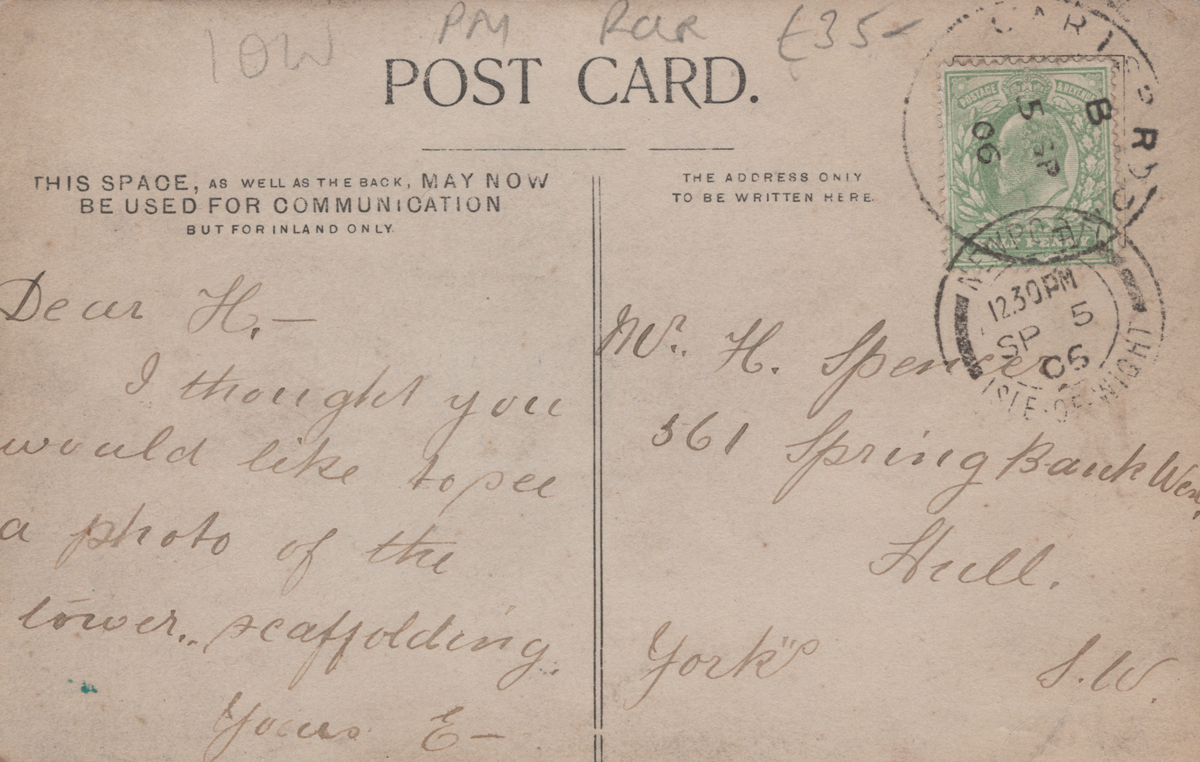 IOW PM Rar £35-
POST CARD.
THIS SPACE, AS WELL AS THE BACK, MAY NOW
BE USED FOR COMMUNICATION
BUT FOR INLAND ONLY.
THE ADDRESS ONLY
TO BE WRITTEN HERE.
POSTAGE & REVENUE
HALF PENNY
B
5 SP
06
NEWPORT
12.30PM
SP 5
06
ISLE·OF·WIGHT
Dear H,—
I thought you
would like to see
a photo of the
tower scaffolding.
Yours E—
Mr. H. Spencer
561 Spring Bank West,
Hull.
Yorks S.W.